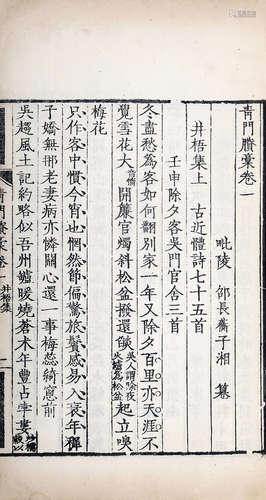 青門賸稾卷一
毗陵 邵長蘅子湘 纂
井梧集上 古近體詩七十五首
壬申除夕客吳門官舍三首
冬盡愁爲客如何翻別家一年又除夕百里亦天涯不
覺雪花大音惰開簾官燭斜松盆撥還餤吳人謂除夜火爐爲松盆起立嗅
梅花
只作客中慣今宵也惘然節偏驚旅鬢感易入衰年稺
子嬌無那老妻病亦憐關心還一事梅蕊綺窗前
吳趨風土記約略似吾州爐暖燒蒼朮年豐占孛婁
青門賸稾 卷一 井梧集 一